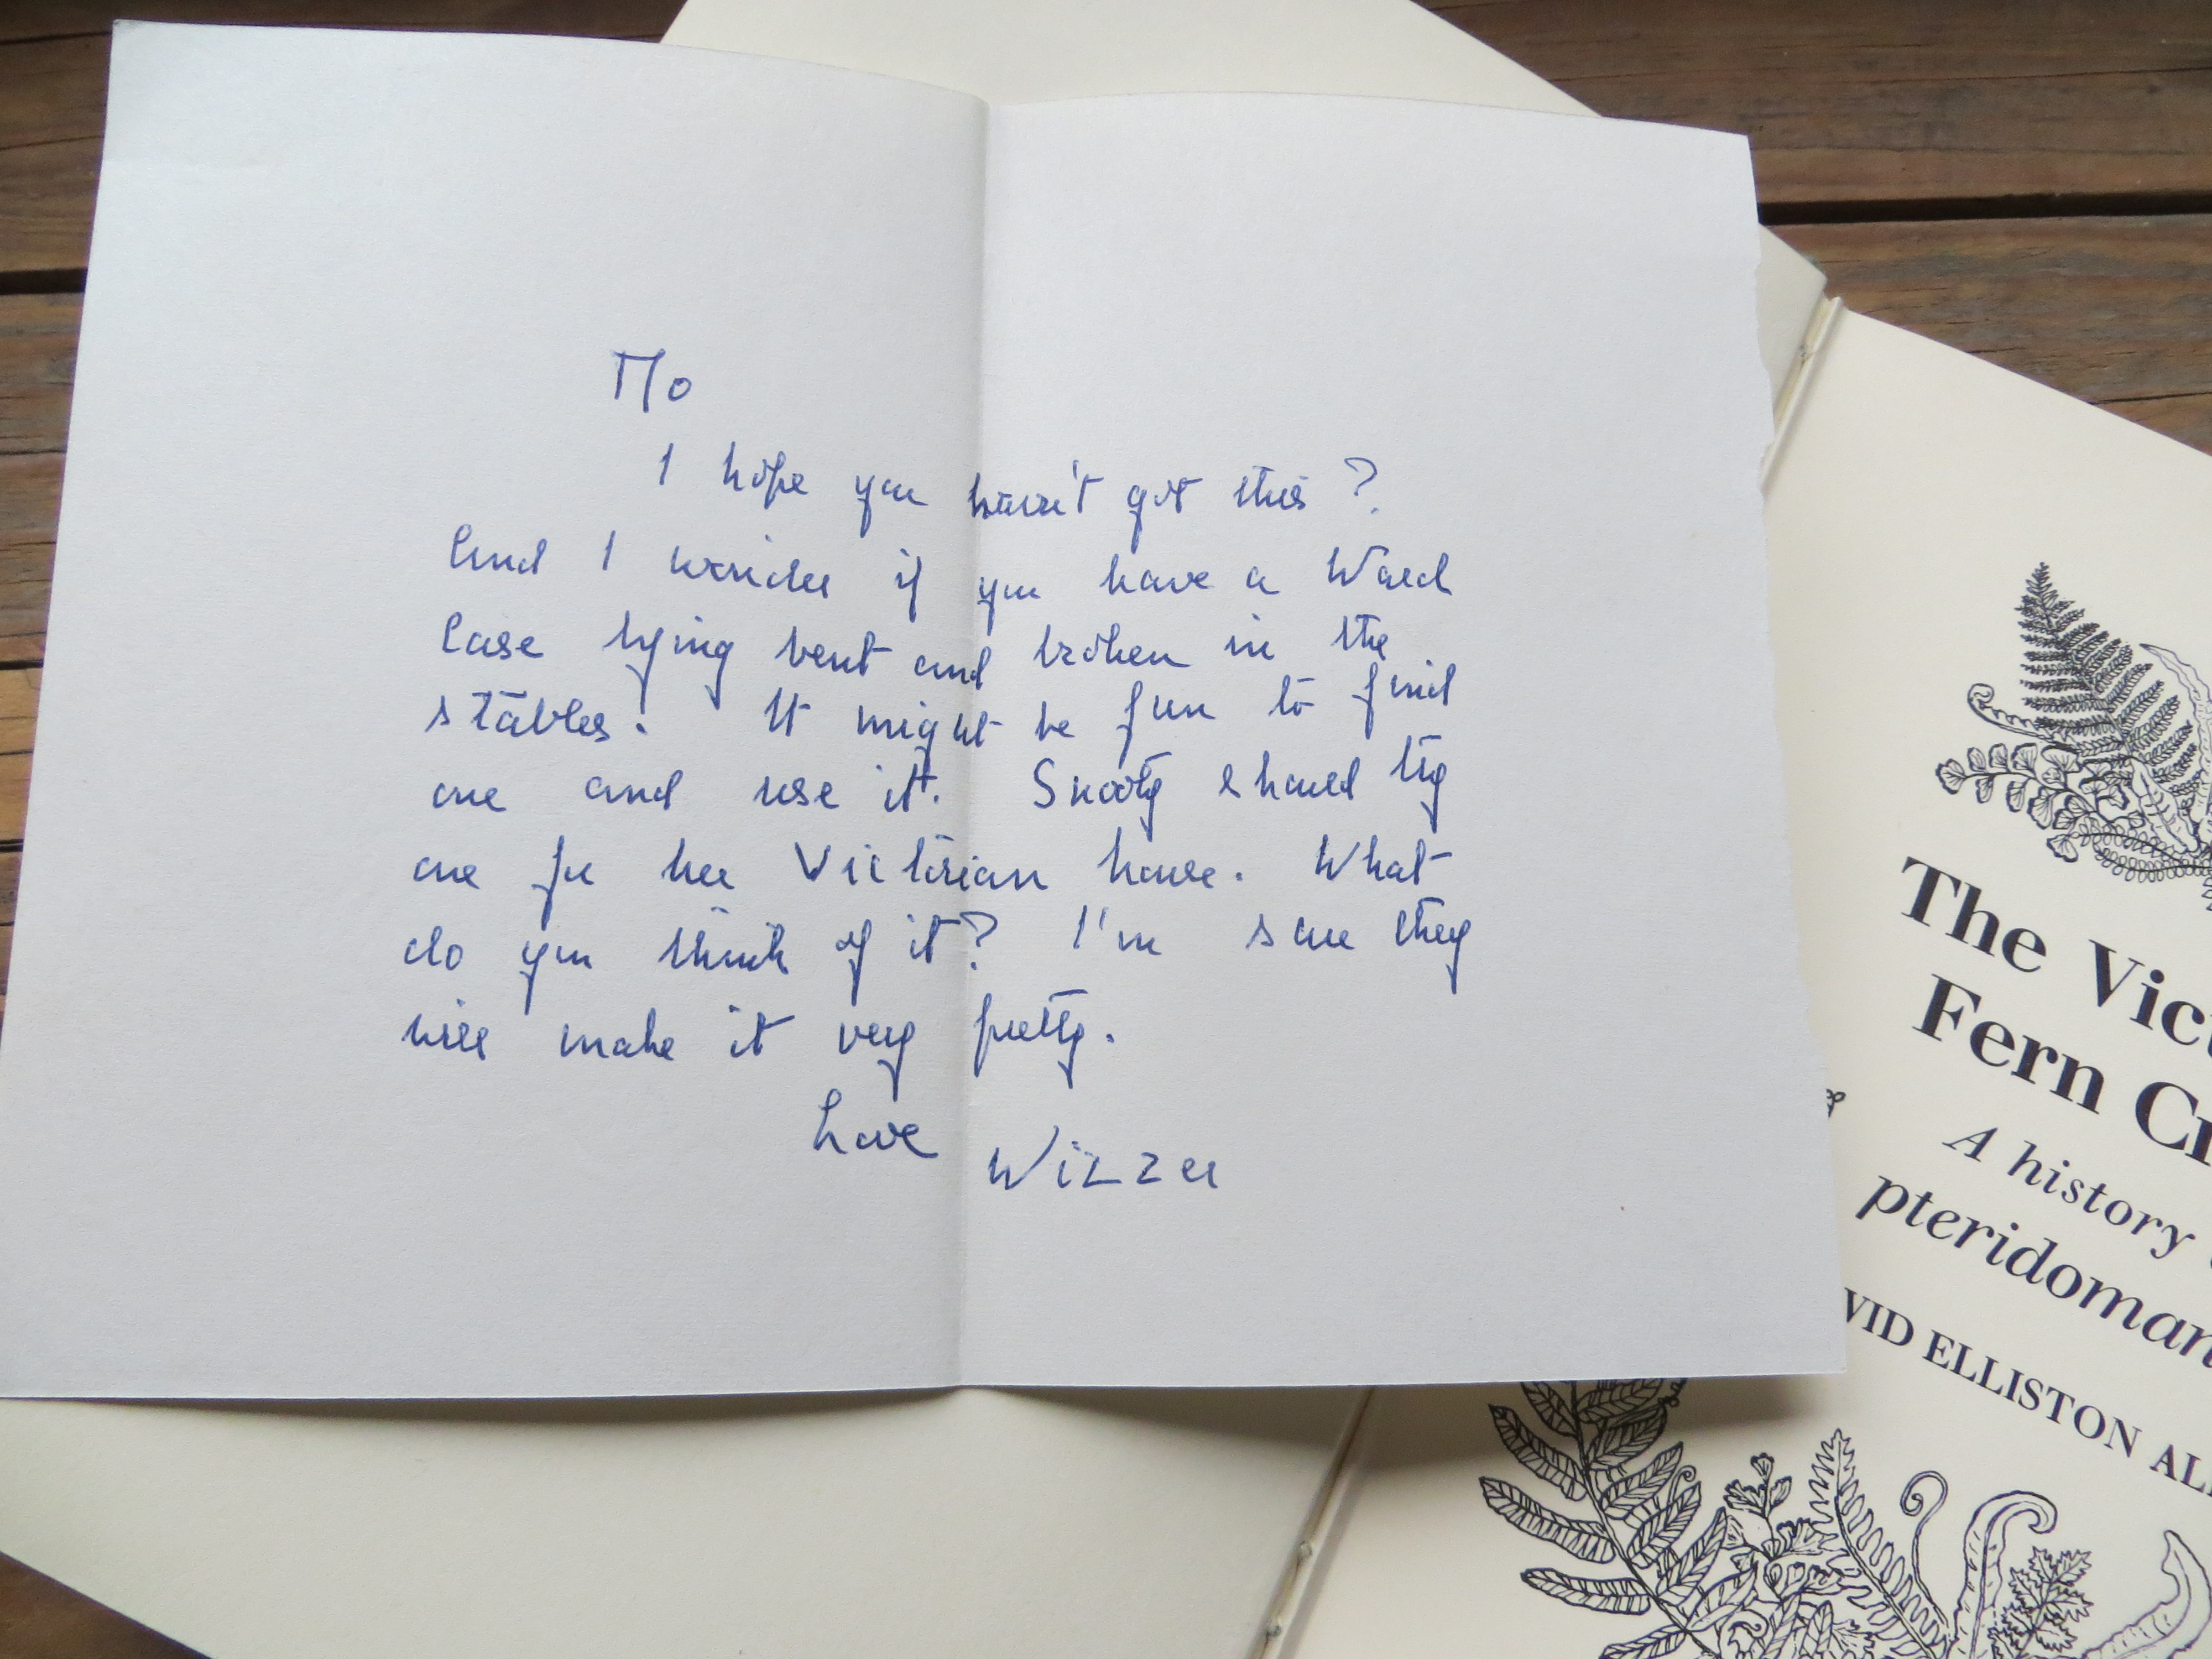 Mo
I hope you haven't got this?
And I wonder if you have a Ward
Case lying bent and broken in the
stables. It might be fun to find
one and use it. Snooty should try
one for her Victorian house. What
do you think of it? I'm sure they
will make it very pretty.
Love Wizzer
The Vict
Fern Cr
A history
pteridoman
VID ELLISTON AL